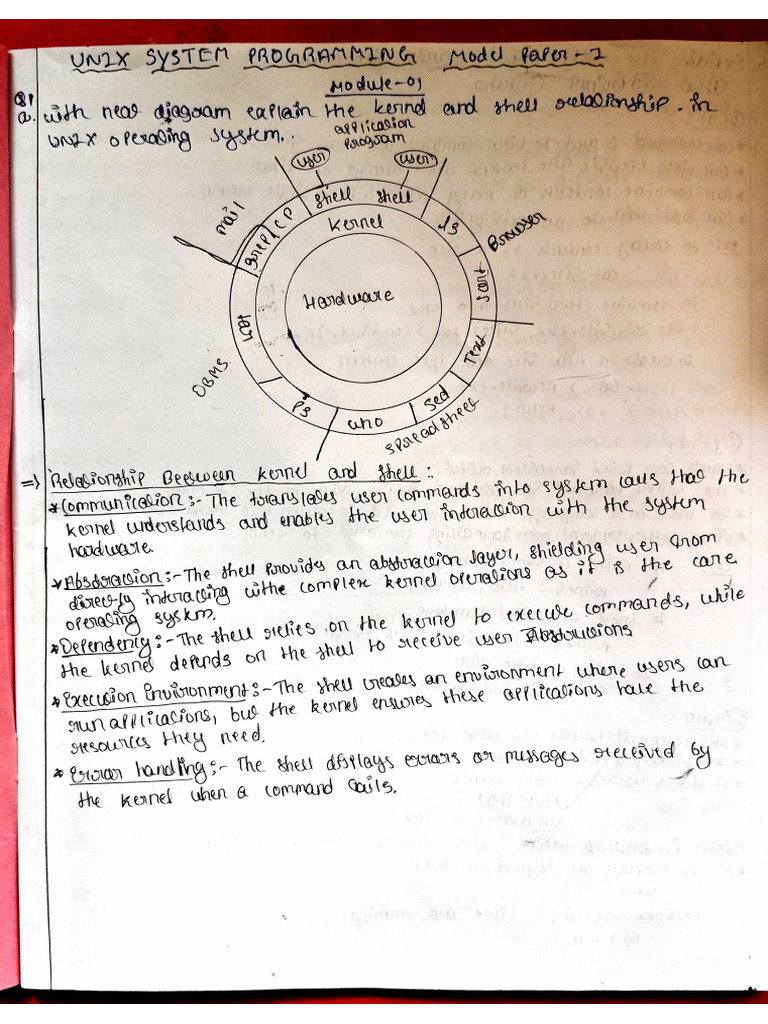 UNIX SYSTEM PROGRAMMING Model Paper-I
Module-01
Q1
a. with neat diagram explain the kernel and shell relationship. in
UNIX operating system.
application
program
user user
mail
shell shell
grep CP
kernel
ls
Browser
Hardware
sort
vi
DBMS
Text
Ps
who
sed
spreadsheet
=> Relationship Between kernel and shell :-
* Communication :- The translates user commands into system calls that the
kernel understands and enables the user interaction with the system
hardware.
* Abstraction :- The shell provides an abstraction layer, shielding user from
directly interacting withe complex kernel operations as it is the care
operating system.
* Dependency :- The shell relies on the kernel to execute commands, while
the kernel depends on the shell to receive user
* Execution Environment :- The shell creates an environment where users can
run applications, but the kernel ensures these applications have the
resources they need.
* Error handling :- The shell displays errors or messages received by
the kernel when a command fails.